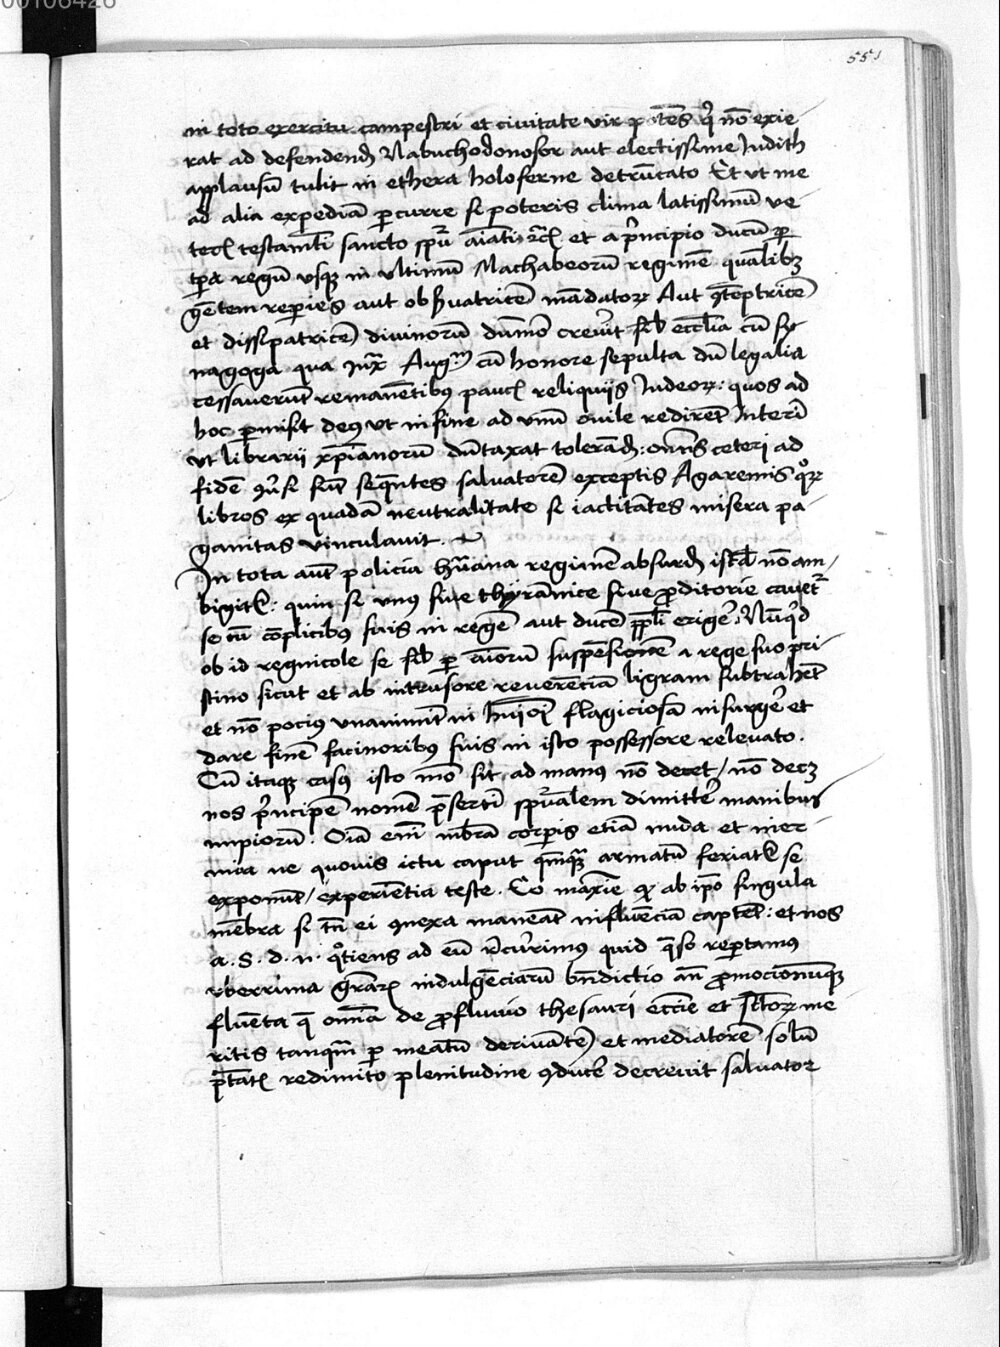 00106426
551
in toto exercitu campestri et civitate vir potēs qͥ nō exie
rat ad defendendū Nabuchodonosor aut electissime Judith
applausū tulit in ethera holoferne detrūcato Et ut me
ad alia expediā pcurre si poteris clima latissimū ve
teris testamēti sancto spū aīati et a pͥncipio ducū p
regū usqꝫ in ultimū Machabeorū regimē qualibꝫ
gētem repies aut obsvatricē mādatoꝝ Aut ꝯtēptricē
et dissipatricē divinorū dūmō crevit sub ecclīa cū sy
nagoga qua iux Augᵐ cū honore sepulta dū legalia
cessaverūt remanētibꝰ paucis reliquijs Judeoꝝ: quos ad
hoc pmisit deꝰ ut in fine ad unū ovile redirēt Interī
ut librarij xpianorū dūtaxat tolerādi: om̄s ceteri ad
fidē ꝯusi sūt seqūtes salvatorē exceptis Agarenis qͦꝝ
libros ex quadā neutralitate si iactitātes misera pa-
ganitas vinculavit.
In tota aūt policia hūana regimē absurdū istud nō am-
bigitur: quin si unꝰ sive thyrānice sive proditorie cavet
se cū cōplicibꝰ suis in regē aut ducē ppli erigere. Nūqͥd
ob id regnicole se sub p suspēsionē a rege suo pri-
stino sicut et ab intrusore reverēciā ligiam subtrahēt
et nō pociꝰ unanimit in hui flagiciosā insurgere et
dare finē facinoribꝰ suis in isto possessore relevato.
Cū itaqꝫ casꝰ isto mō sit, ad manꝰ nō decet / nō decꝫ
nos pͥncipē nomē presertī spūalem dimittere manibus
impiorū. Oīa enī mēbra corpis etiā nuda et iner-
mia ne quovis ictu caput qmqꝫ armatū feriatur se
exponūt / experiētia teste. Eo maxīe qꝫ ab ipō singula
mēbra si tn̄ ei ꝯnexa maneāt influēciā captēt: et nos
a. S. d. n. qͦtiens ad eū recurrimus quid queso reportamus
uberrima gratiaꝝ indulgēciarū bn̄dictio an̄ promocionumqꝫ
fluēta que omnia de profluvio thesauri eccīe et sctoꝝ me
ritis tanqm̄ p meatū derivātē et mediatorē solū
ptātis redimito plenitudine ꝯducere decrevit salvator